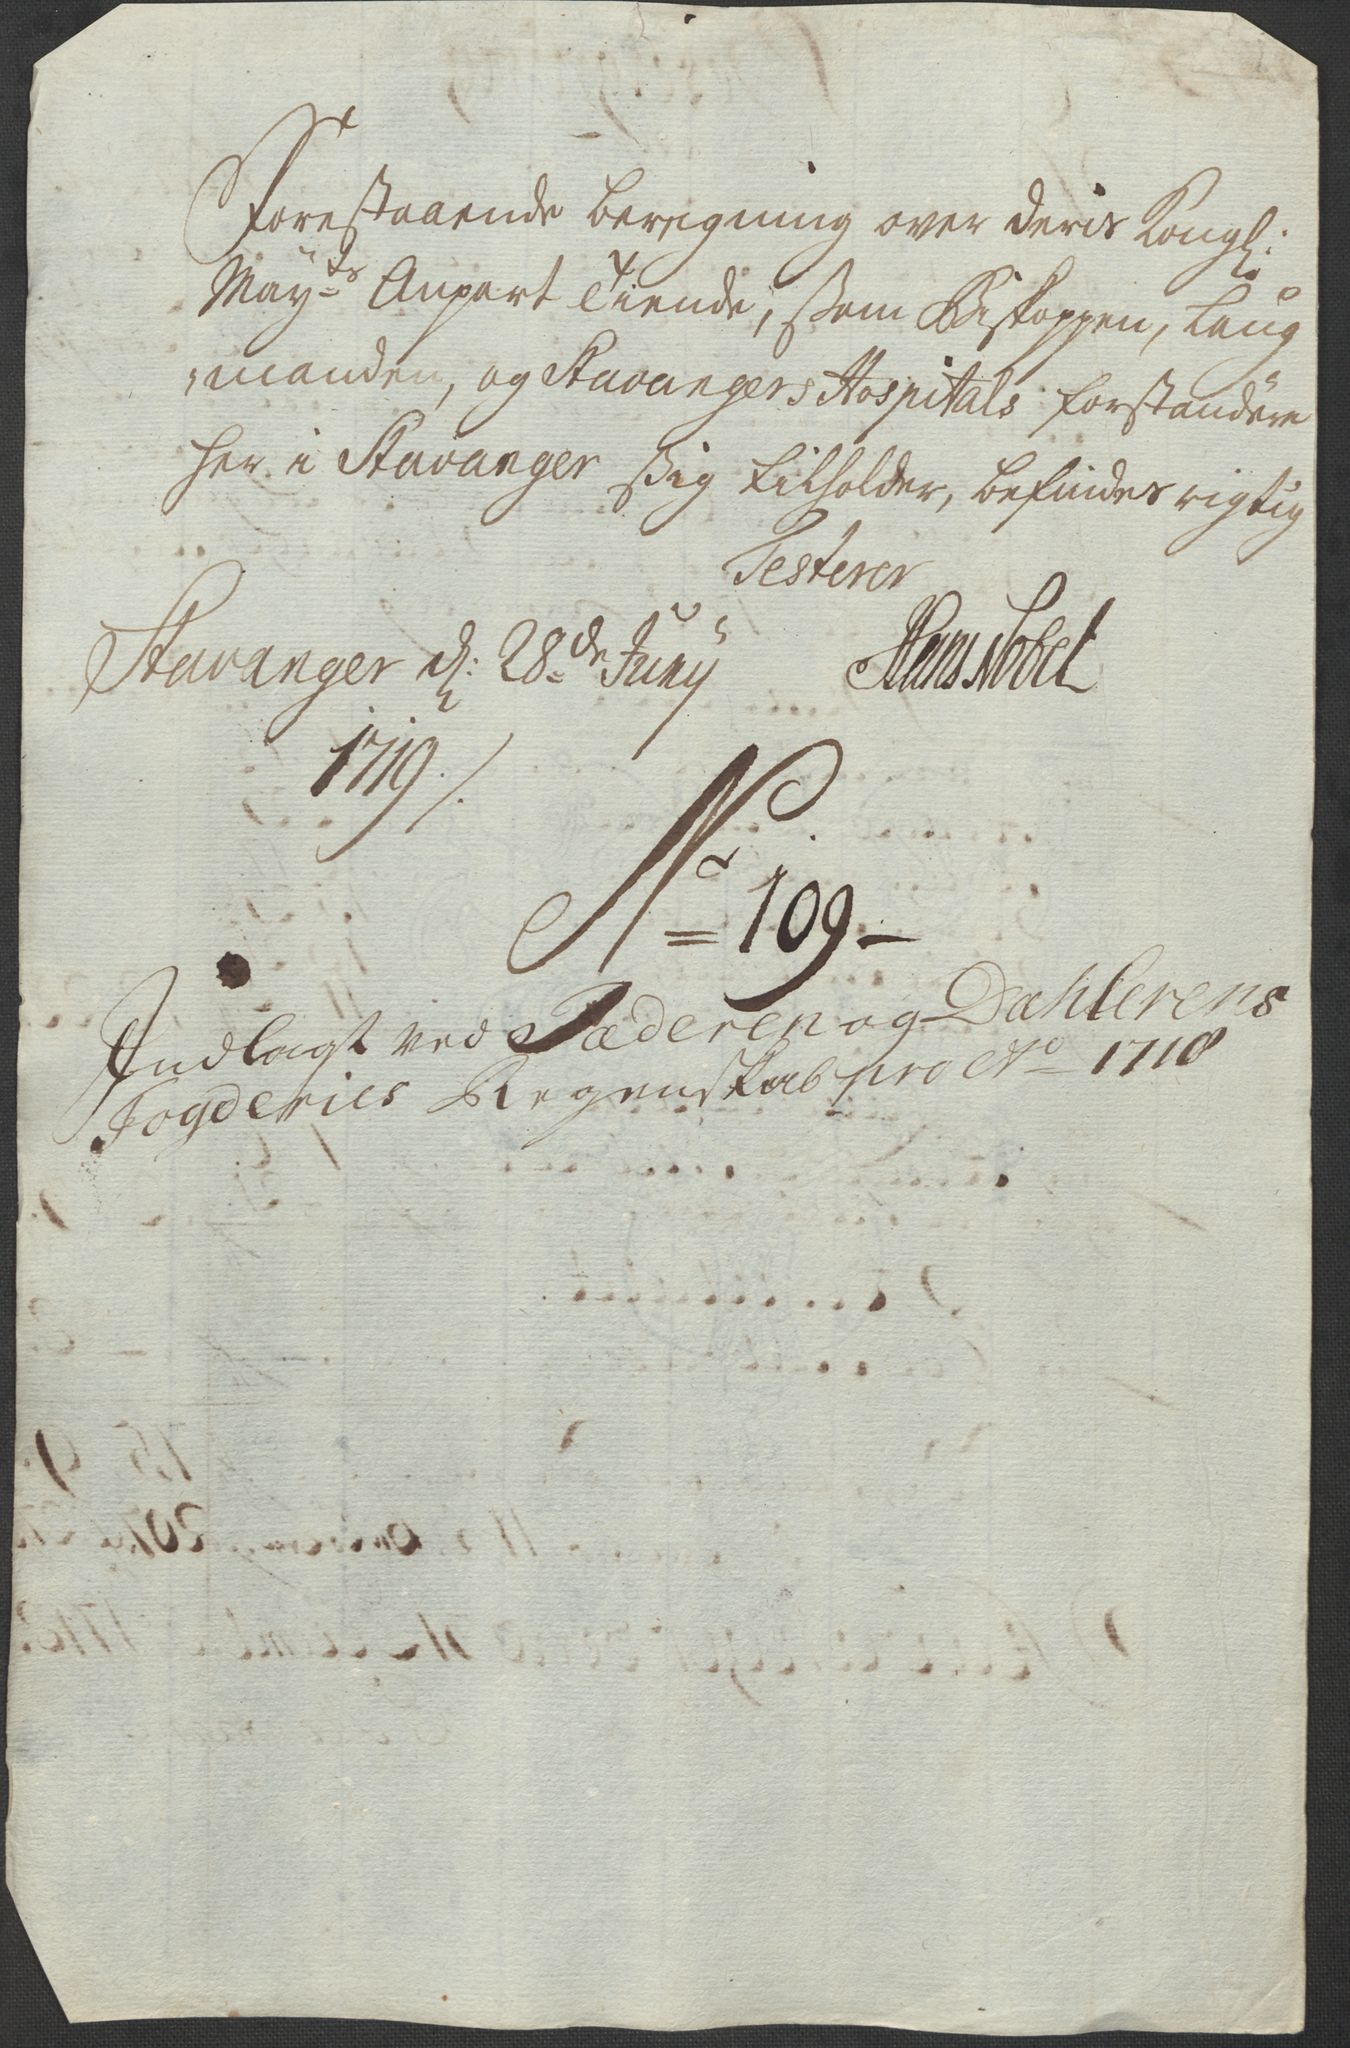 Forestaaende beregning over deris Kongl:
May:ts Anpart Tiende, som Biskoppen, Laug
manden, og Stavangers Hospitals forstandere
her i Stavanger sig tilholder, befindes rigtig
Testerer
Stavanger d: 28de Juny Hans Nobel
1719 /.
No = 109 –
Indlagt ved Jæderen og Dahlerens
Fogderies Regenskab pro Ao 1718